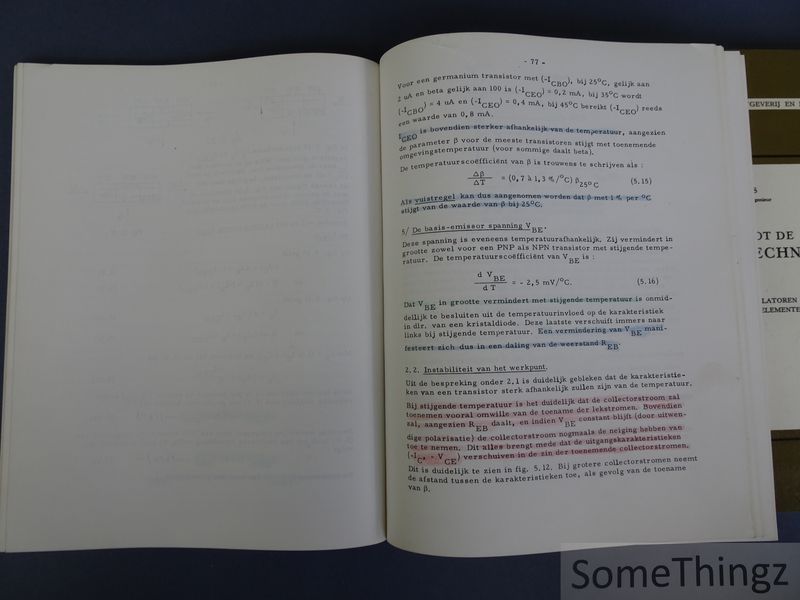 - 77 -
Voor een germanium transistor met (-I_CBO), bij 25°C, gelijk aan
2 uA en beta gelijk aan 100 is (-I_CEO) = 0,2 mA, bij 35°C wordt
(-I_CBO) = 4 uA en (-I_CEO) = 0,4 mA, bij 45°C bereikt (-I_CEO) reeds
een waarde van 0,8 mA.
I_CEO is bovendien sterker afhankelijk van de temperatuur, aangezien
de parameter β voor de meeste transistoren stijgt met toenemende
omgevingstemperatuur (voor sommige daalt beta).
De temperatuurscoëfficiënt van β is trouwens te schrijven als :
Δβ / ΔT = (0,7 à 1,3 %/°C) β_25°C (5.15)
Als vuistregel kan dus aangenomen worden dat β met 1 % per °C
stijgt van de waarde van β bij 25°C.
5/ De basis-emissor spanning V_BE.
Deze spanning is eveneens temperatuurafhankelijk. Zij vermindert in
grootte zowel voor een PNP als NPN transistor met stijgende tempe-
ratuur. De temperatuurscoëfficiënt van V_BE is :
d V_BE / d T = - 2,5 mV/°C. (5.16)
Dat V_BE in grootte vermindert met stijgende temperatuur is onmid-
dellijk te besluiten uit de temperatuurinvloed op de karakteristiek
in dir. van een kristaldiode. Deze laatste verschuift immers naar
links bij stijgende temperatuur. Een vermindering van V_BE mani-
festeert zich dus in een daling van de weerstand R_EB.
2.2. Instabiliteit van het werkpunt.
Uit de bespreking onder 2.1 is duidelijk gebleken dat de karakteristie-
ken van een transistor sterk afhankelijk zullen zijn van de temperatuur.
Bij stijgende temperatuur is het duidelijk dat de collectorstroom zal
toenemen vooral omwille van de toename der lekstromen. Bovendien
zal, aangezien R_EB daalt, en indien V_BE constant blijft (door uitwen-
dige polarisatie) de collectorstroom nogmaals de neiging hebben van
toe te nemen. Dit alles brengt mede dat de uitgangskarakteristieken
(-I_C, - V_CE) verschuiven in de zin der toenemende collectorstromen.
Dit is duidelijk te zien in fig. 5.12. Bij grotere collectorstromen neemt
de afstand tussen de karakteristieken toe, als gevolg van de toename
van β.
GEVERIJ EN
OT DE
ECHN
LATOREN
ELEMENTE
SomeThingz